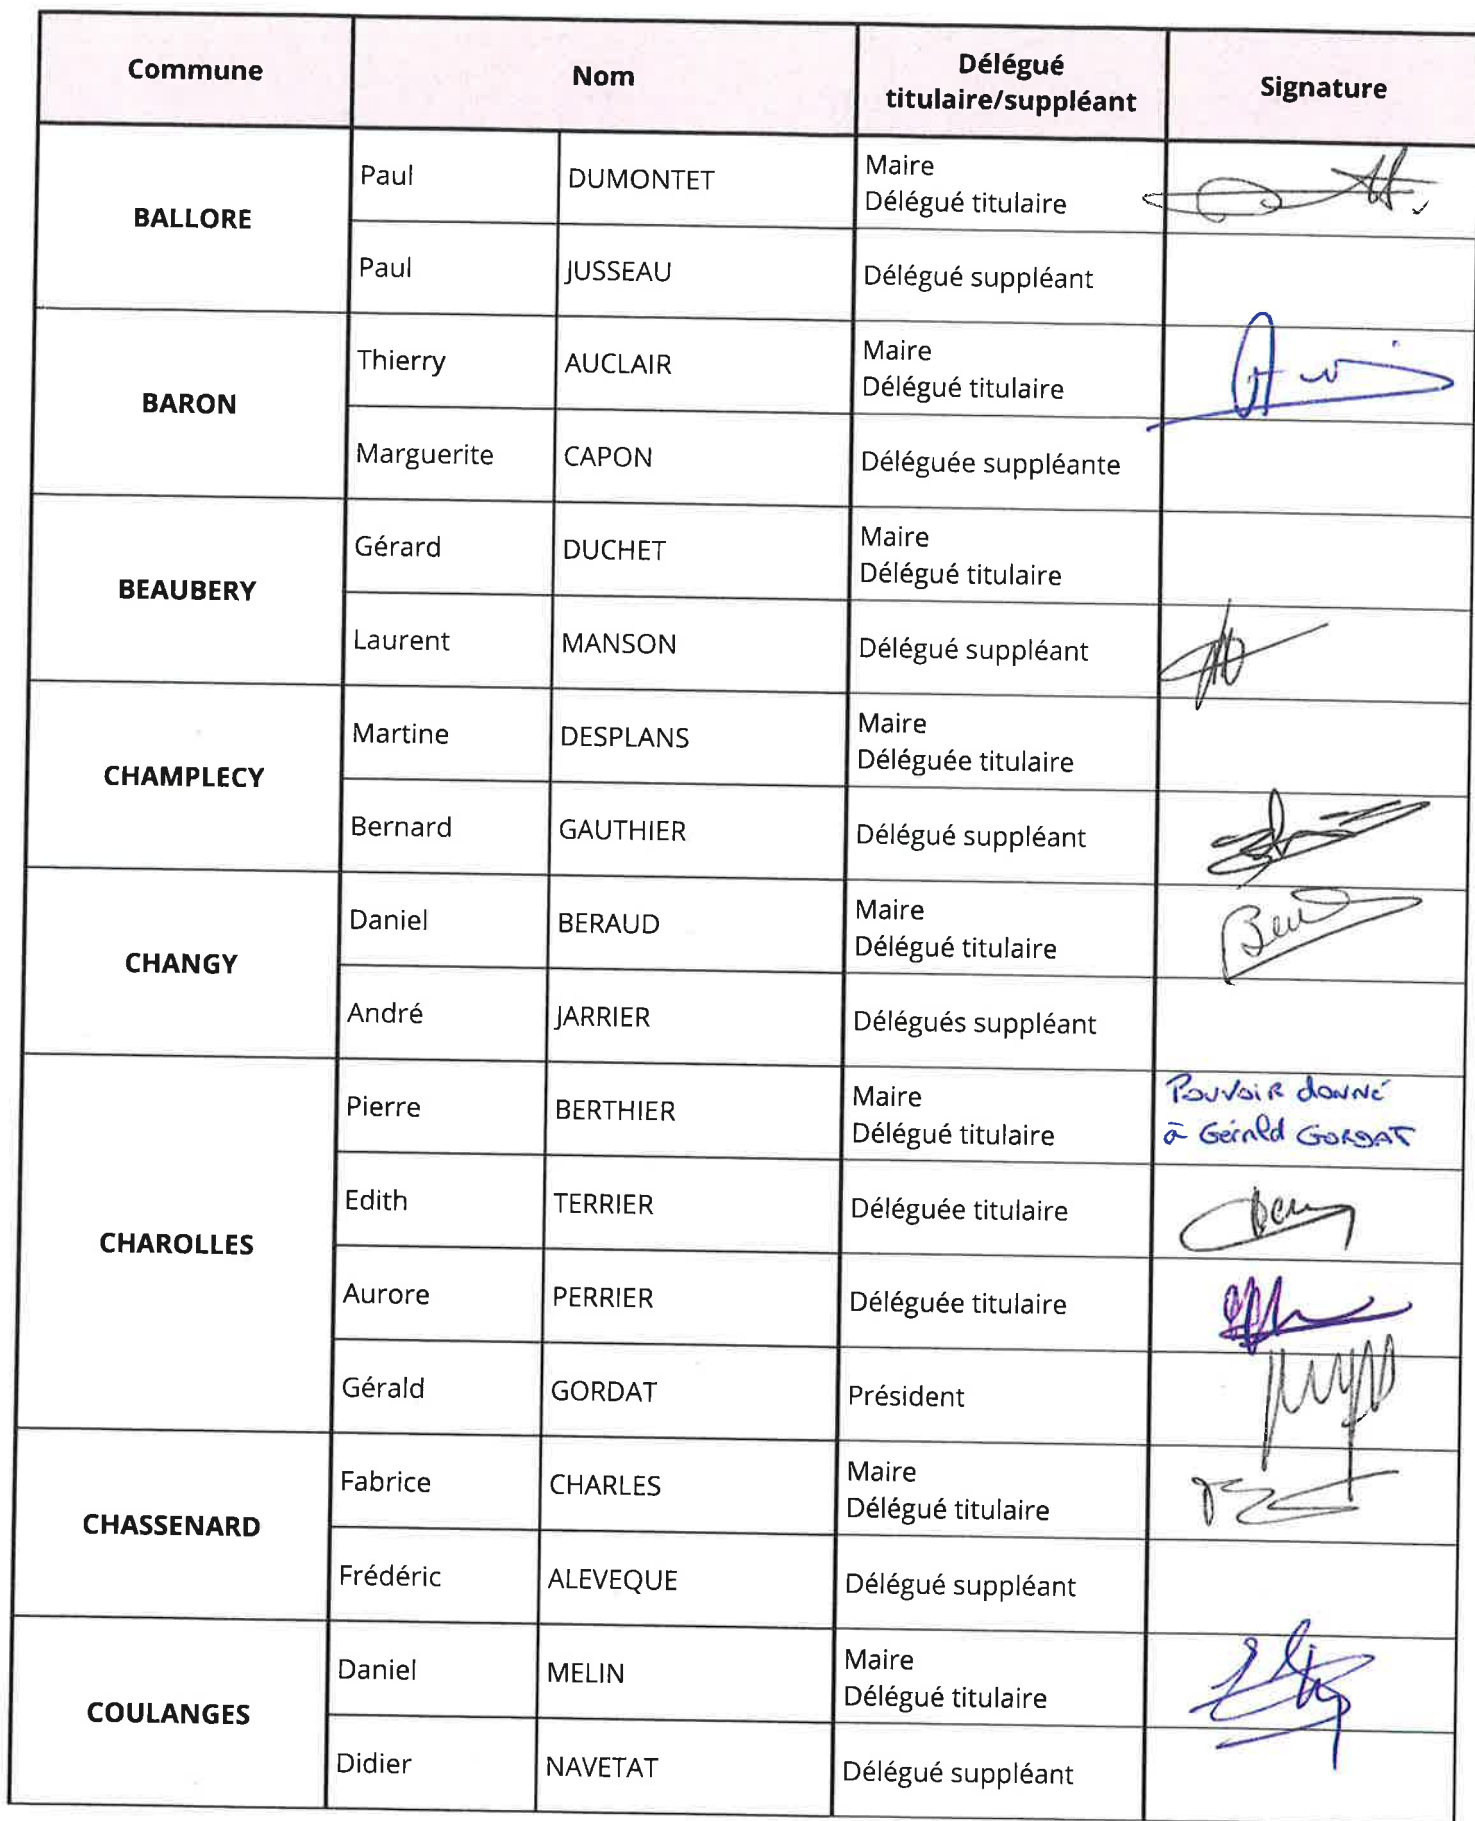 Commune Nom Délégué titulaire/suppléant Signature
BALLORE
Paul DUMONTET Maire
Délégué titulaire
Paul JUSSEAU Délégué suppléant
BARON
Thierry AUCLAIR Maire
Délégué titulaire
Marguerite CAPON Déléguée suppléante
BEAUBERY
Gérard DUCHET Maire
Délégué titulaire
Laurent MANSON Délégué suppléant
CHAMPLECY
Martine DESPLANS Maire
Déléguée titulaire
Bernard GAUTHIER Délégué suppléant
CHANGY
Daniel BERAUD Maire
Délégué titulaire
André JARRIER Délégués suppléant
CHAROLLES
Pierre BERTHIER Maire Pouvoir donné
Délégué titulaire à Gérald GORDAT
Edith TERRIER Déléguée titulaire
Aurore PERRIER Déléguée titulaire
Gérald GORDAT Président
CHASSENARD
Fabrice CHARLES Maire
Délégué titulaire
Frédéric ALEVEQUE Délégué suppléant
COULANGES
Daniel MELIN Maire
Délégué titulaire
Didier NAVETAT Délégué suppléant